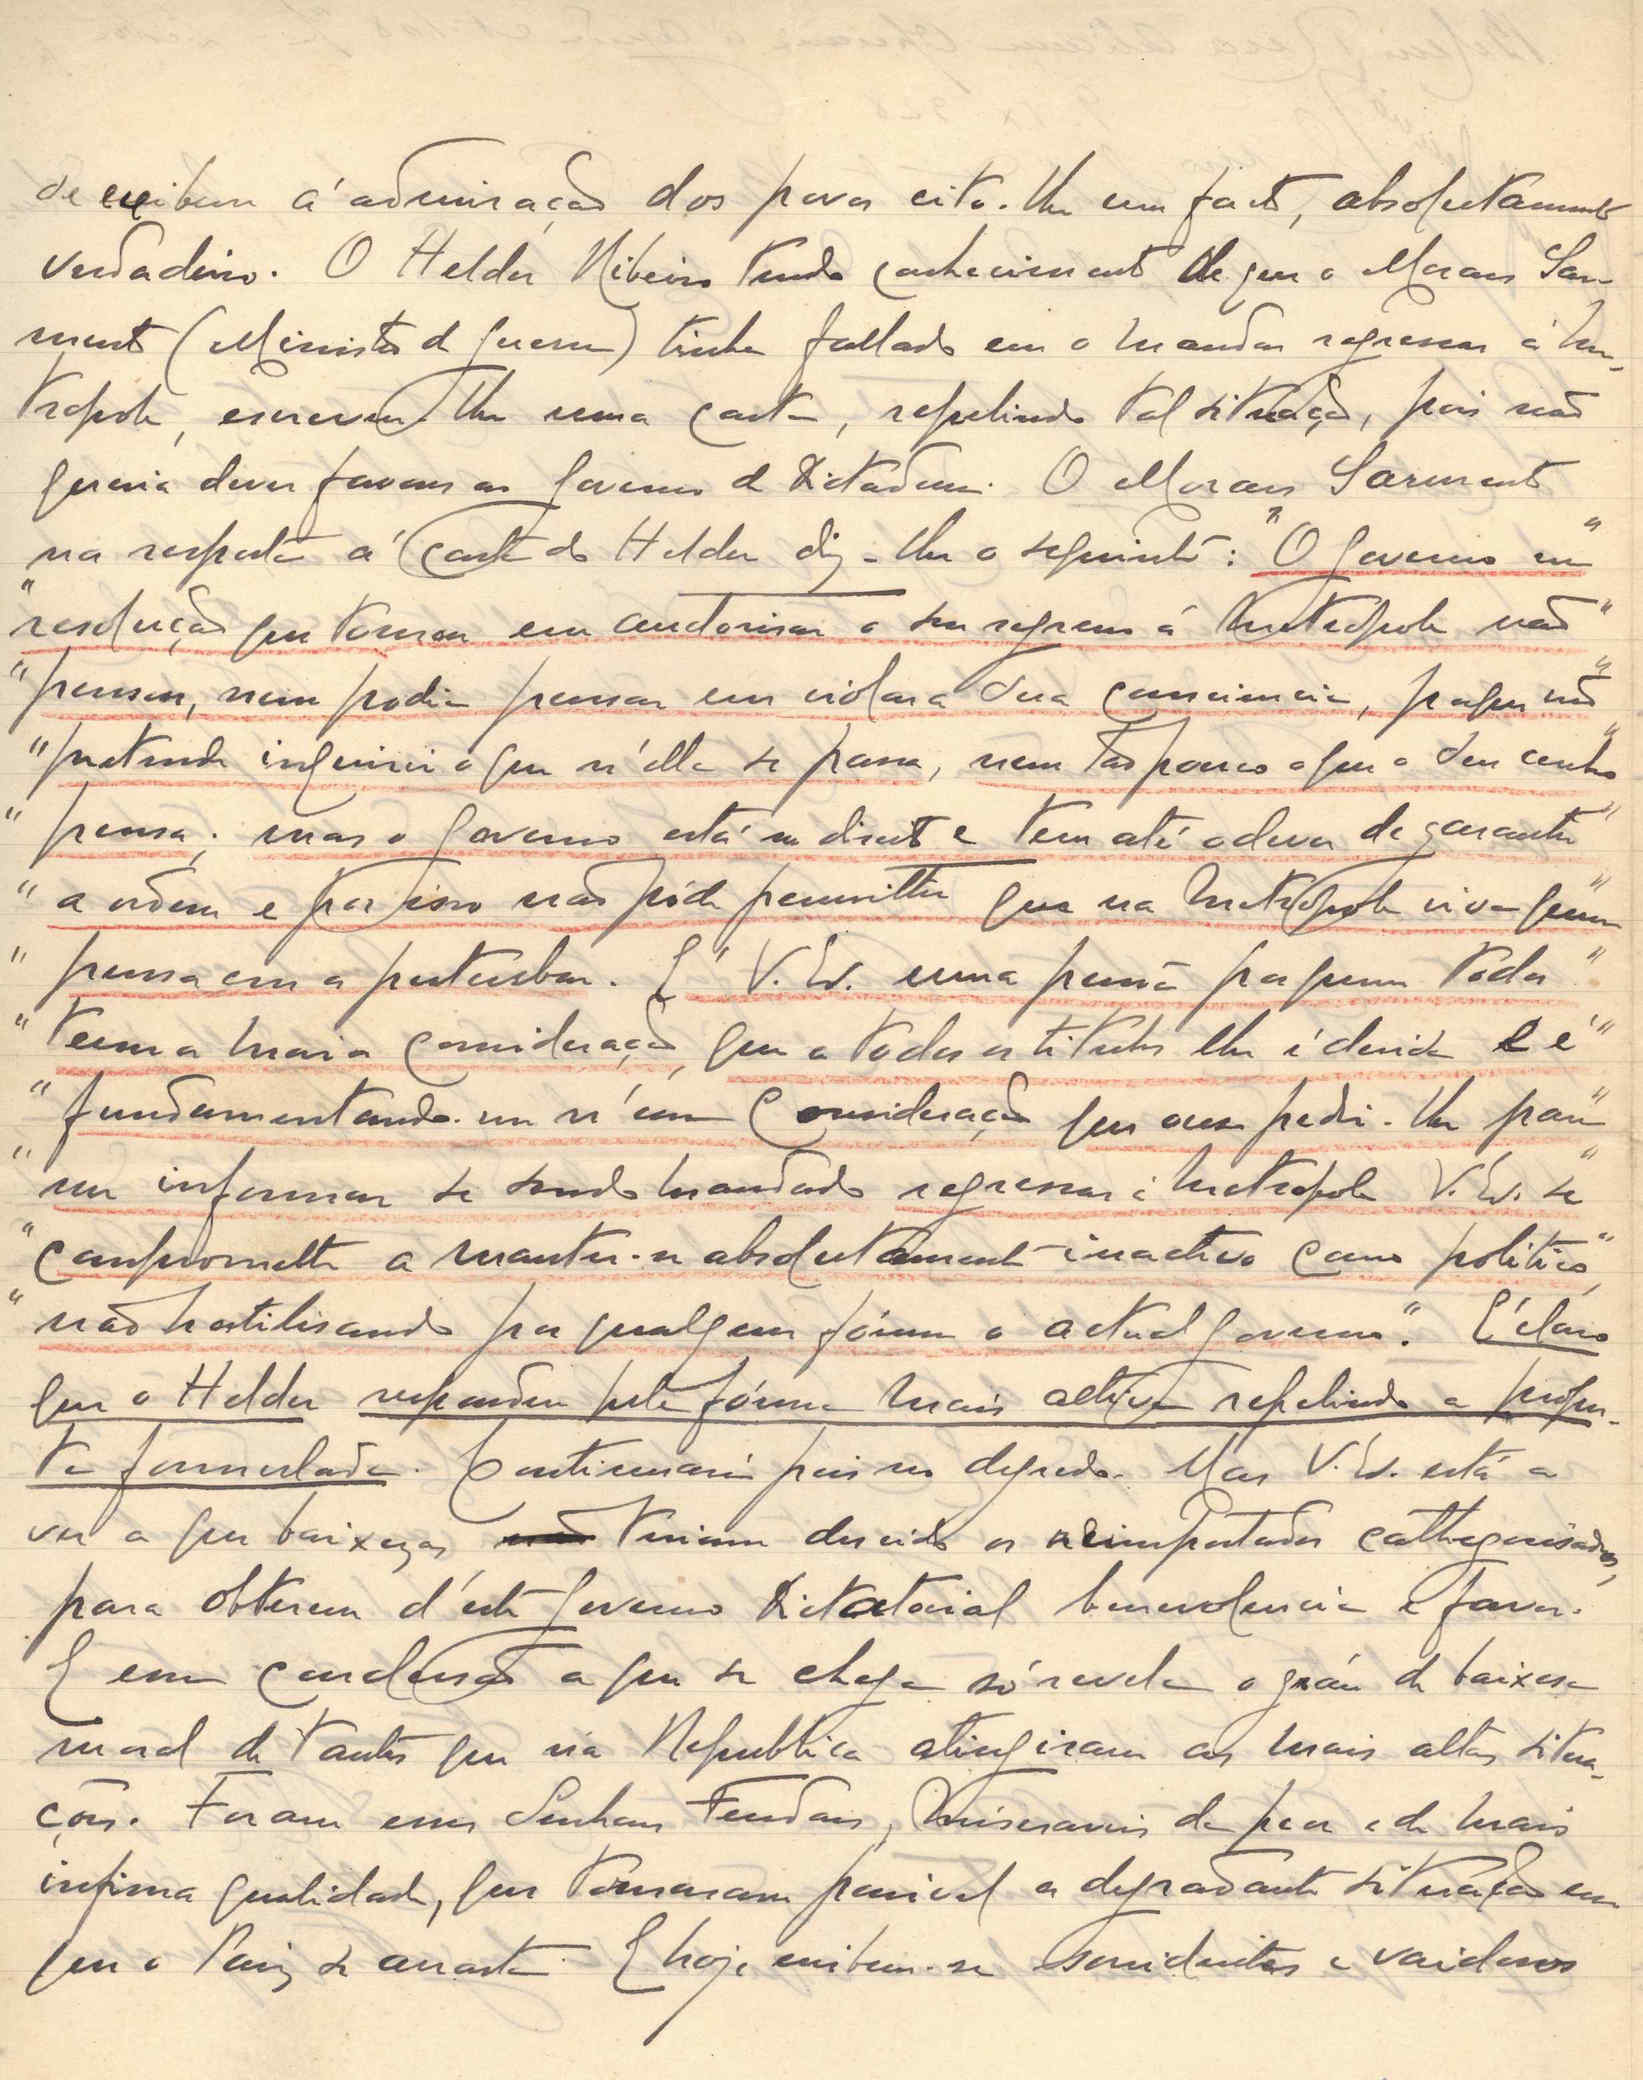 se exibem á admiração dos povos cito-lhe um facto, absolutamente
verdadeiro. O Helder Ribeiro tendo conhecimento de que o Morais Sar-
mento (Ministro da Guerra) tinha fallado em o mandar regressar á Me-
tropole, escreveu-lhe uma carta, repelindo tal situação, pois não
queria dever favores ao Governo da Dictadura. O Morais Sarmento
na resposta á carta do Helder diz-lhe o seguinte: "O Governo na"
"resolução que tomou em auctorisar o seu regresso á Metropole não"
"pensou, nem podia pensar em violar a sua consciencia, porque não"
"pretende inquirir o que n'ella se passa, nem tão pouco o que o seu cerebro"
"pensa; mas o Governo está no direito e tem até o dever de garantir"
"a ordem e por isso não póde permittir que na Metropole viva quem"
"pensa em a perturbar. É V. Ex. uma pessoa por quem todos"
"teem a maior consideração, que a todos os titulos lhe é devida e é"
"fundamentando-me n'essa consideração que ouso pedir-lhe para"
"me informar se sendo mandado regressar á Metropole V. Ex. se"
"compromette a manter-se absolutamente inactivo como politico,"
"não hostilisando por qualquer fórma o actual governo". É claro
que o Helder respondeu pela fórma mais altiva repelindo a propos-
ta formulada. Continuará pois no degredo. Mas V. Ex. está a
ver a que baixezas teriam descido os reimportados cathegorisados,
para obterem d'este Governo Dictatorial benevolencia e favor.
E essa conclusão a que se chega só revela o gráu de baixesa
moral de tantos que na Republica atingiram as mais altas situa-
ções. Foram esses Senhores Feudais, miseraveis da peor e da mais
infima qualidade, que tornaram possivel a degradante situação em
que o Paiz se arrasta. E hoje exibem-se sorridentes e vaidosos